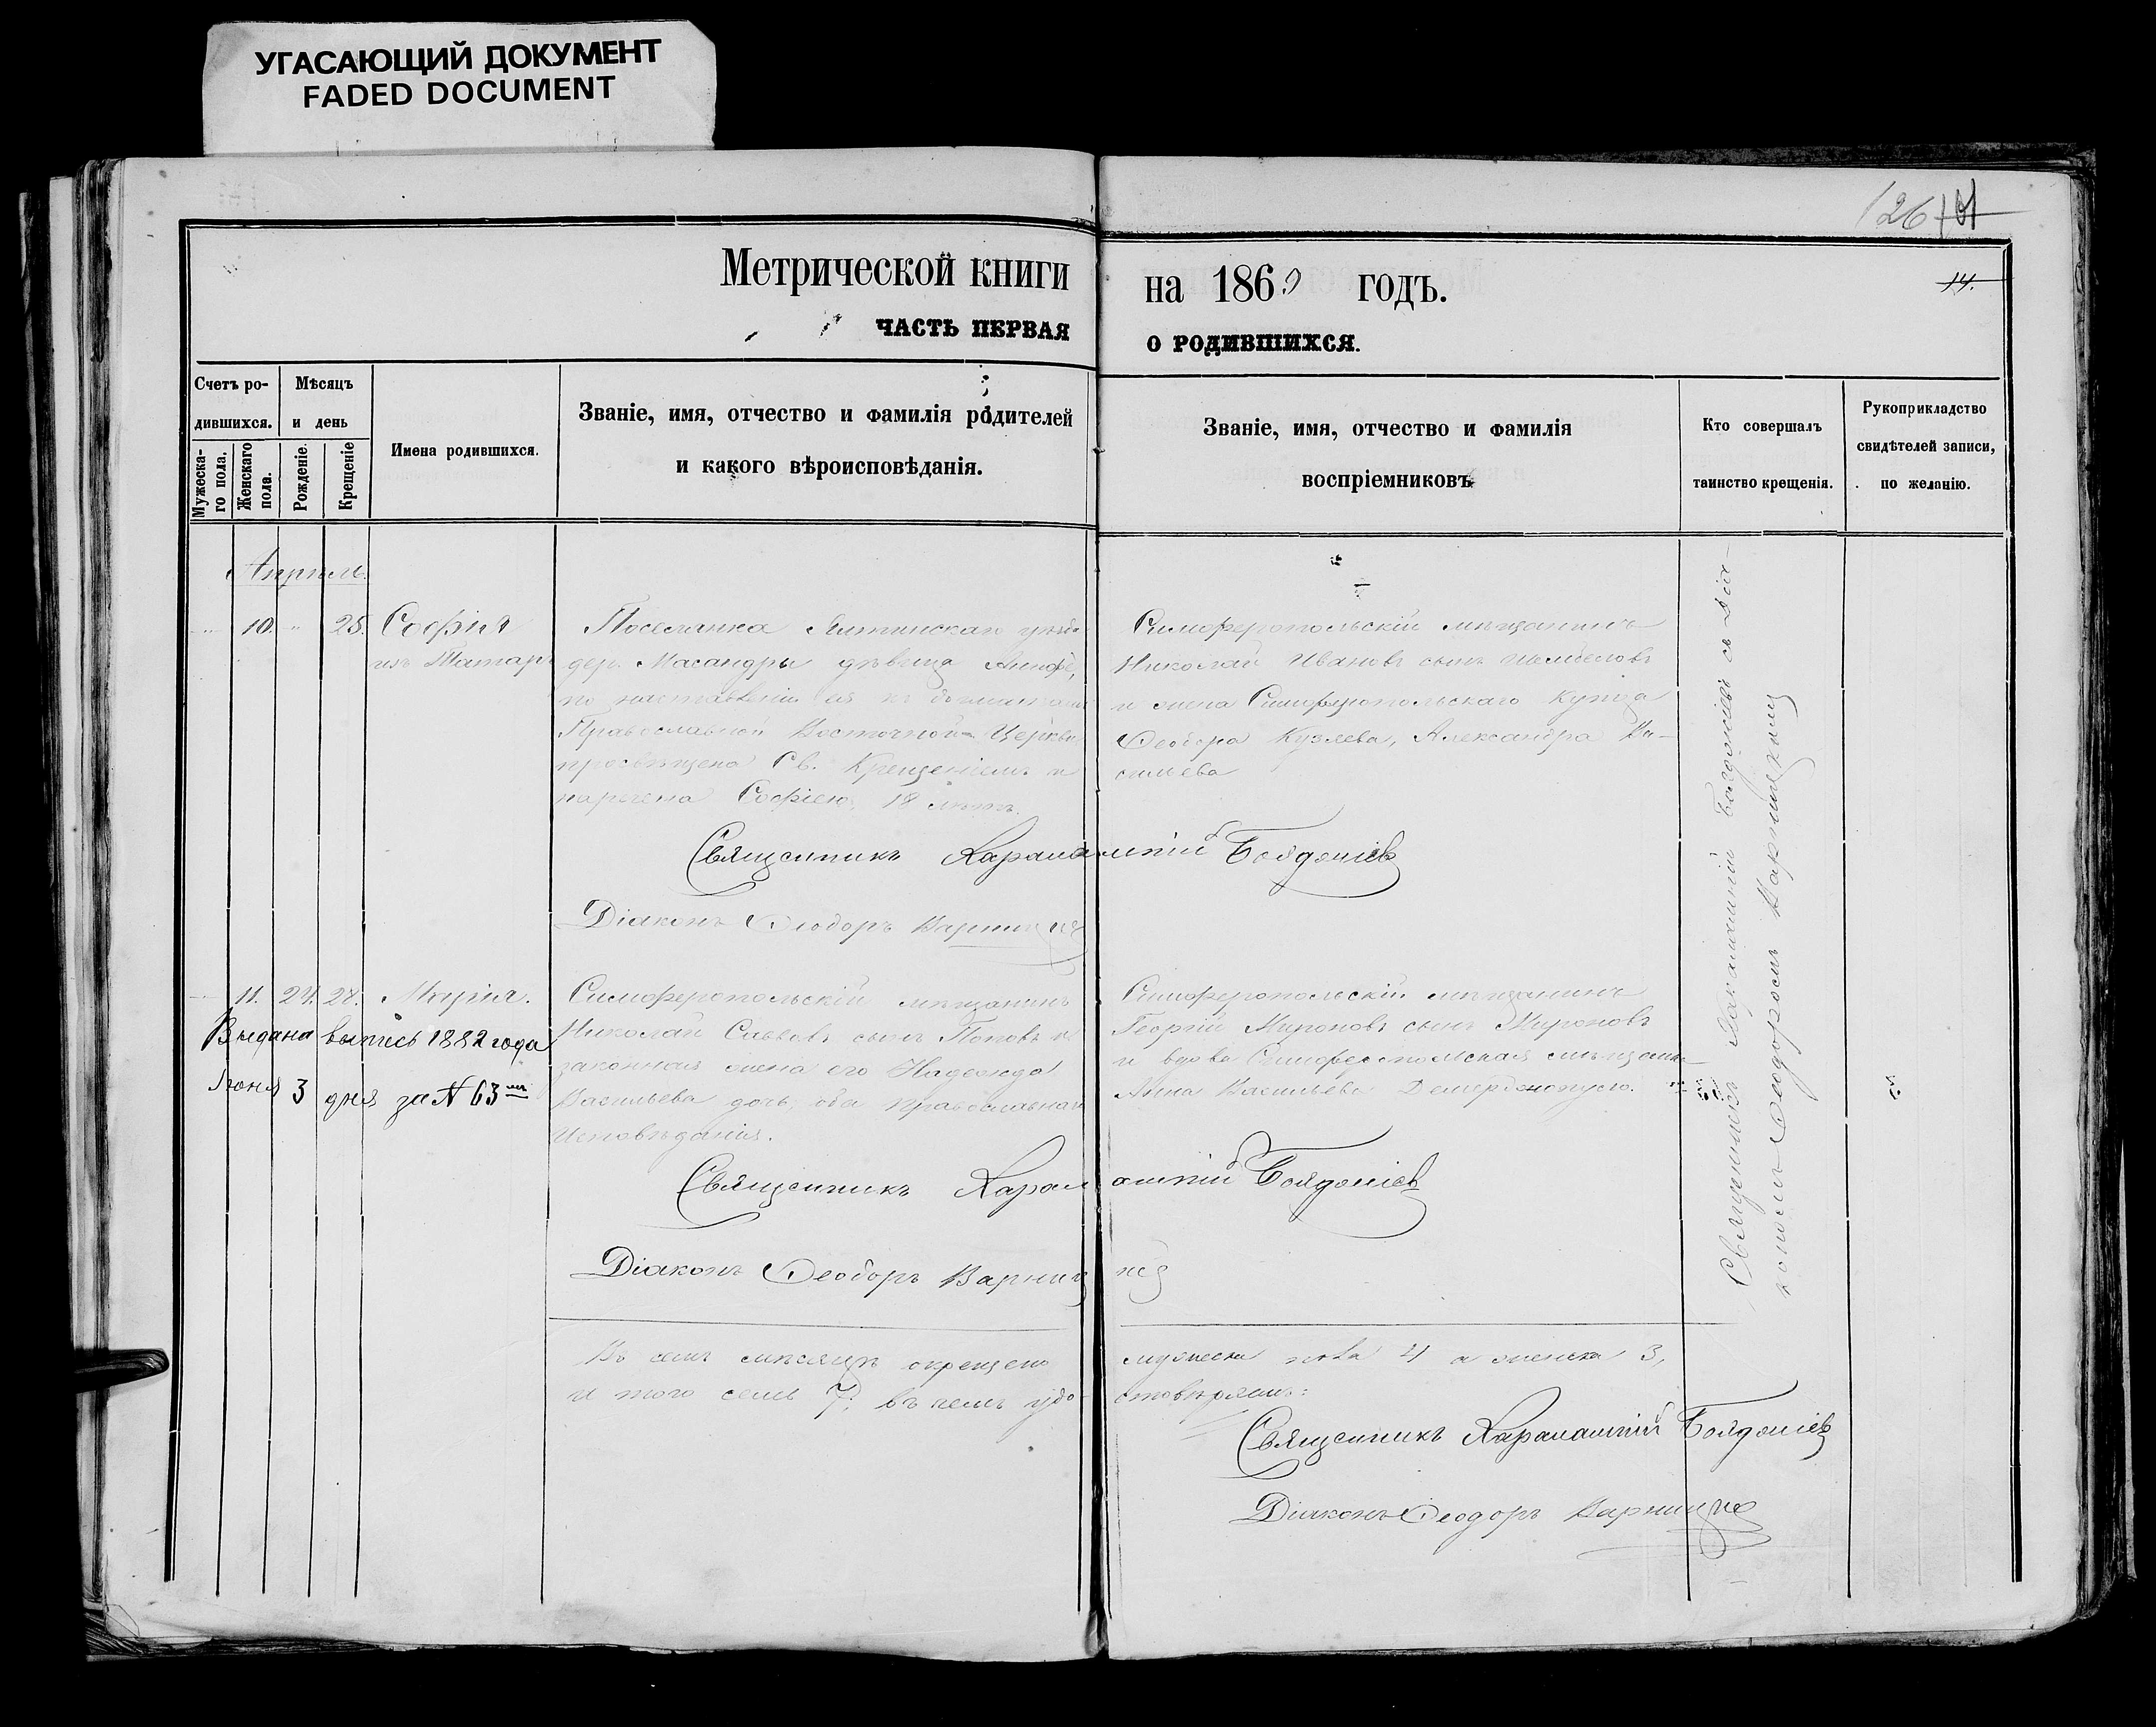 УГАСАЮЩИЙ ДОКУМЕНТ
FADED DOCUMENT
126
14.
Метрической книги на 1869 годъ.
ЧАСТЬ ПЕРВАЯ О РОДИВШИХСЯ.
Счетъ родившихся.
Мужескаго пола.
Женскаго пола.
Мѣсяцъ и день
Рожденіе.
Крещеніе
Имена родившихся.
Званіе, имя, отчество и фамилія родителей
и какого вѣроисповѣданія.
Званіе, имя, отчество и фамилія
воспріемниковъ
Кто совершалъ
таинство крещенія.
Рукоприкладство
свидѣтелей записи,
по желанію.
Апрѣль.
10. 25. Софія
изъ Татаръ
Поселянка Ялтинскаго уѣзда
дер. Масандры дѣвица
по наставленіи ея къ
Православной Восточной Церкви
просвѣщена Св. Крещеніемъ и
наречена Софіею, 18 лѣтъ.
Симферопольскій мѣщанинъ
Николай Ивановъ сынъ
и жена Симферопольскаго Купца
Ѳеодора Кузлева, Александра Ва-
сильева
Священникъ Харалампій Боядоніев
Діаконъ Ѳеодоръ
11. 24. 28. Марія.
Выдана выпись 1882 года
Іюня 3 дня за № 63
Симферопольскій мѣщанинъ
Николай Саввовъ сынъ Поповъ и
законная жена его Надежда
Васильева дочь, оба православнаго
Исповѣданія.
Симферопольскій мѣщанинъ
Георгій Мироновъ сынъ Мироновъ
и вдова Симферопольская
Анна Васильева
Священникъ Харалампій Боядоніев
Діаконъ Ѳеодоръ
Священникъ Харалампій Боядоніевъ съ Діа-
кономъ Ѳеодоромъ
Въ семъ мѣсяцѣ окрещено мужеска пола 4 а женска 3,
и того семь 7; въ чемъ удостовѣряемъ:
Священникъ Харалампій Боядоніев
Діаконъ Ѳеодоръ